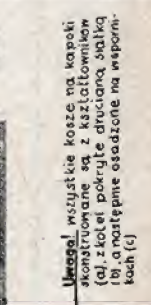 Uwaga! wszystkie kosze na kapoki
skonstruowane są z kształtowników
(a), z kolei pokryte drucianą siatką
(b), a następnie osadzone na wsporni-
kach (c)